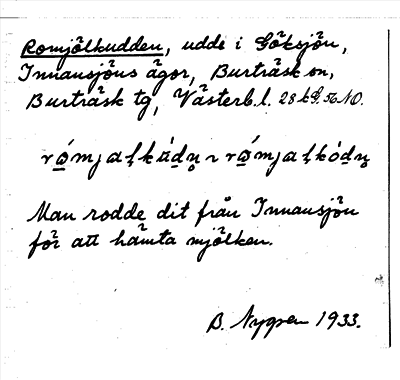 Romjölkudden, udde i Göksjön,
Innansjöns ägor, Burträsk sn,
Burträsk tg, Västerb.l. 28 k G. 56 NO.
Man rodde dit från Innansjön
för att hämta mjölken.
B. Nygren 1933.